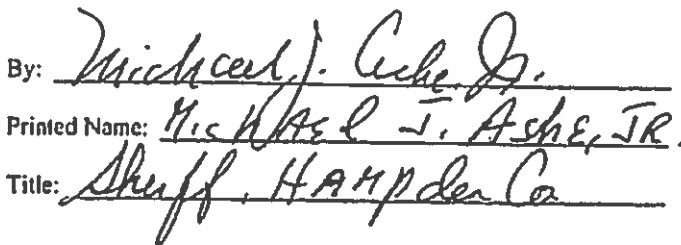 By: Michael J. Ashe, Jr.
Printed Name: MicHAEl J. AshE, JR.
Title: Sheriff, HAMPden Co